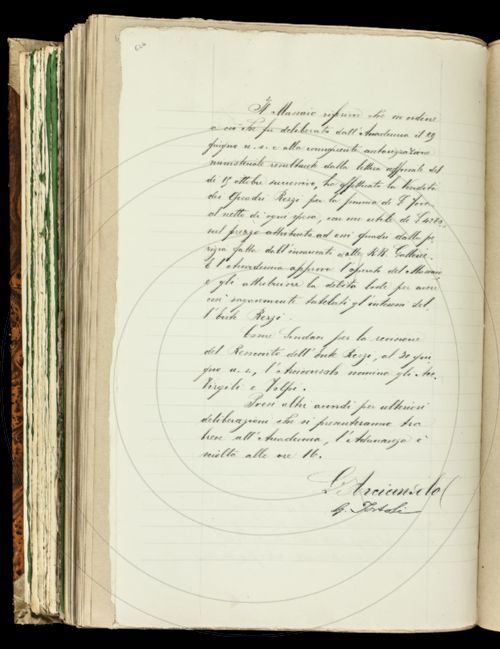 Il Massaio riferisce che in ordine
a ciò che fu deliberato dall'Accademia il 29
giugno u. s. e alla conseguente autorizzazione
ministeriale resultante dalla lettera
di 15 ottobre successivo, ha effettuata la Vendita
dei Quadri Rezzi per la somma di £
al netto di ogni spesa, con un utile di
sul prezzo attribuito ad essi quadri dalla pe
rizia fatta dall'incaricato dalle RR. Gallerie.
E l'Accademia approva l'operato del Massaio
e gli attribuisce la debita lode per avere
così tutelati gl'interessi del
l'Ente Rezzi.
Come Sindaci per la revisione
del Rendiconto dell'Ente Rezzi, al 30 giu
gno u. s., l'Arciconsolo nomina gli Acc.
Virgili e Volpi.
Presi altri accordi per ulteriori
deliberazioni che si presenteranno tra
breve all'Accademia, l'Adunanza è
sciolta alle ore 16.
L'Arciconsolo
G. Tortoli